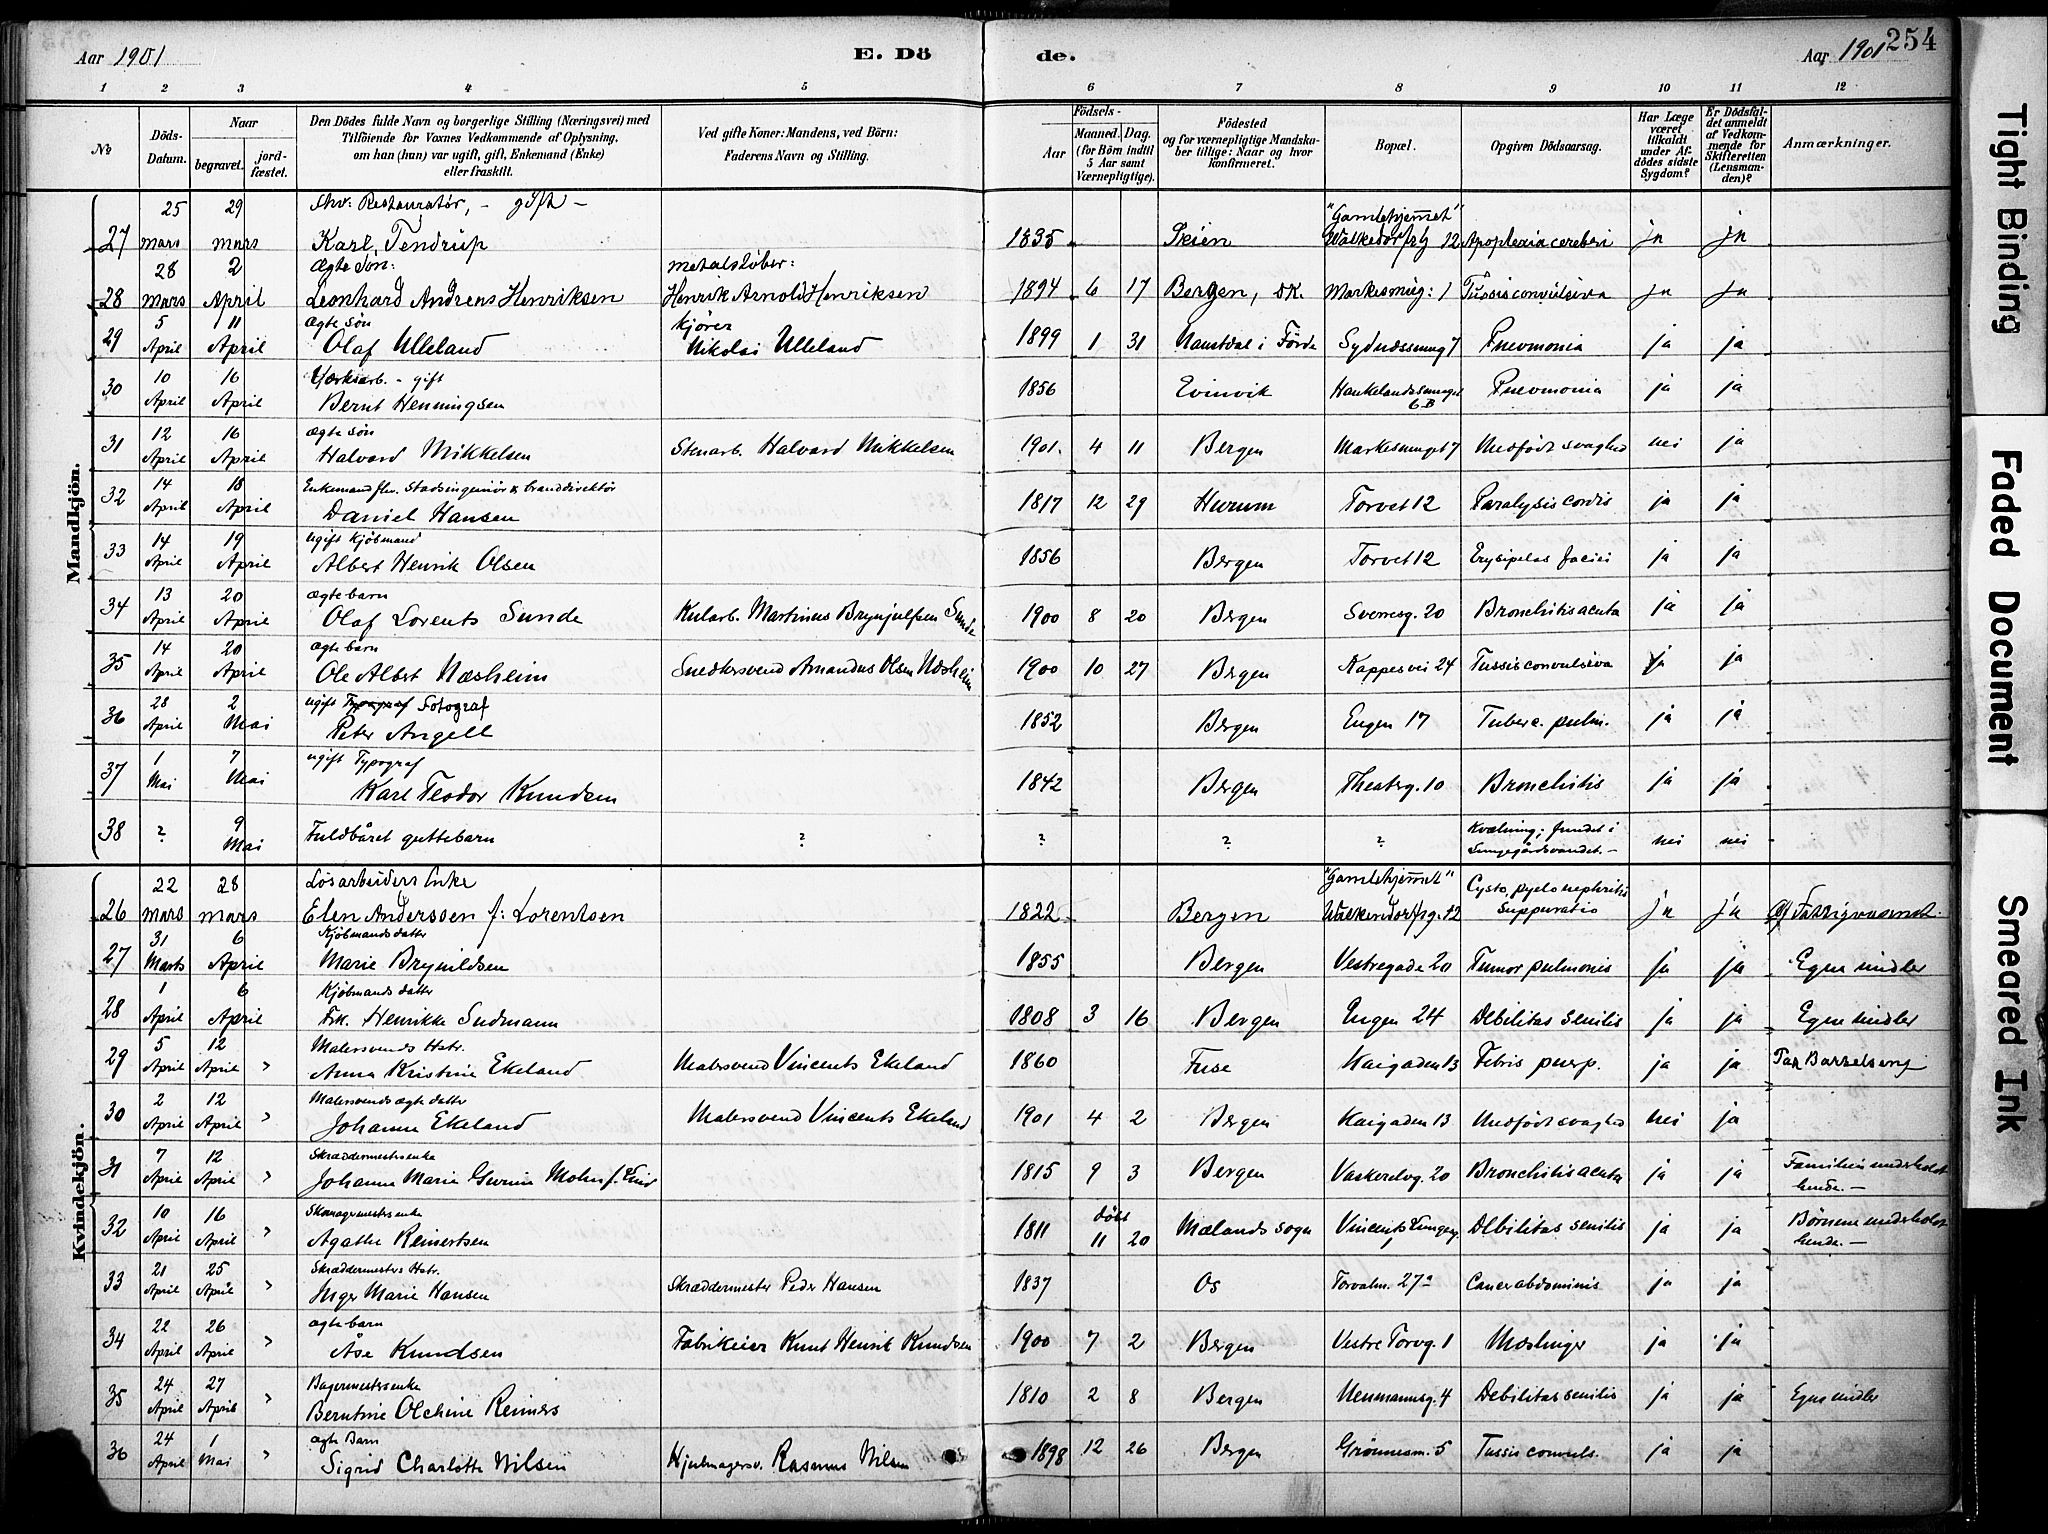 Aar 1901
E. Dö
de.
Aar 1901
254
1 2 3 4 5 6 7 8 9 10 11 12
No
Döds-Datum.
Naar
begravet.
jord-fæstet.
Den Dödes fulde Navn og borgerlige Stilling (Næringsvei) med
Tilföiende for Voxnes Vedkommende af Oplysning,
om han (hun) var ugift, gift, Enkemand (Enke)
eller fraskilt.
Ved gifte Koner: Mandens, ved Börn:
Faderens Navn og Stilling.
Födsels-
Aar
Maaned. Dag.
(for Börn indtil
5 Aar samt
Værnepligtige).
Födested
og for værnepligtige Mandska-
ber tillige: Naar og hvor
konfirmeret.
Bopæl.
Opgiven Dödsaarsag.
Har Læge
været
tilkaldt
under Af-
dödes sidste
Sygdom?
Er Dödsfal-
det anmeldt
af Vedkom-
mende for
Skifteretten
(Lensman-
den)?
Anmærkninger.
Mandkjön.
25 29 fhv: Restauratør, - gift - "Gamlehjemmet"
27 mars mars Karl Tendrup 1835 Skien 12 Apoplexia cerebri ja ja
28 2 Ægte Søn: metalstøber:
28 mars April Leonhard Andreas Henriksen Henrik Arnold Henriksen 1894 6 17 Bergen, DK. Markesmug: 1 Tussis convulsiva ja ja
5 11 ægte søn kjører
29 April April Olaf Ulleland Nikolai Ulleland 1899 1 31 Naustdal i Førde Sydnæssmug 7 Pneumonia ja ja
10 16 Værksarb. - gift
30 April April Bernt Henningsen 1856 Evinvik Haukelandssmuget 6B Pneumonia ja ja
12 16 ægte søn
31 April April Halvard Mikkelsen Stenarb. Halvard Mikkelsen 1901. 4 11 Bergen Markesmuget 7 Medfødt svaghed nei ja
14 18 Enkemand fhv. Stadsingeniör & branddirektör
32 April April Daniel Hansen 1817 12 29 Hurum Torvet 12 Paralysis cordis ja ja
14 19 ugift Kjöbmand
33 April April Albert Henrik Olsen 1856 Bergen Torvet 12 Erysipelas faciei ja ja
13 20 ægte barn
34 April April Olaf Lorents Sunde Kularb. Martinus Brynjulfsen Sunde 1900 8 20 Bergen Sverresg. 20 Bronchitis acuta ja ja
14 20 ægte barn
35 April April Ole Albert Næsheim Snedkersvend Amandus Olsen Næsheim 1900 10 27 Bergen Kappesvei 24 Tussis convulsiva ja ja
28 2 ugift Typograf Fotograf
36 April Mai Peter Angell 1852 Bergen Engen 17 Tuberc. pulm. ja ja
1 7 ugift Typograf
37 Mai Mai Karl Teodor Knudsen 1842 Bergen Theaterg. 10 Bronchitis ja ja
38 ? 9 Mai Fuldbåret guttebarn ? ? ? ? Kvælning; fundet i
Lungegårdsvandet. - nei nei
Kvindekjön.
22 28 Løsarbeiders Enke "Gamlehjemmet" Cysto, pyelo nephritis
26 mars mars Elen Anderssen f: Lorentsen 1822 Bergen Walkendorfsg. 12 suppurativ ja ja Af Fattigvæsenet.
31 6 Kjöbmandsdatter
27 Marts April Marie Brynildsen 1855 Bergen Vestregade 20 Tumor pulmonis ja ja Egne midler
1 6 Kjöbmands datter
28 April April Frk. Henrikke Sudmann 1808 3 16 Bergen Engen 24 Debilitas senilis ja ja Egne midler
5 12 Malersvends Hstr.
29 April April " Anna Kristine Ekeland Malersvend Vincents Ekeland 1860 Fuse Kaigaden 13 Febris puerp. ja ja Paa Barselseng
2 12 Malersvends ægte datter
30 April April " Johanne Ekeland Malersvend Vincents Ekeland 1901 4 2 Bergen Kaigaden 13 Medfødt svaghed nei ja
7 12 Skræddermestersenke
31 April April " Johanne Marie Mohn f. 1815 9 3 Bergen Vaskerelvg. 20 Bronchitis acuta ja ja Familien underholdt
hende. -
10 16 Skomagermestersenke döbt
32 April April " Agathe Reinertsen 1811 11 20 Mælands sogn Vincents Lungeg. Debilitas senilis ja ja Børnene underholdt
hende. -
21 25 Skræddermesters Hstr.
33 April April " Inger Marie Hansen Skræddermester Peder Hansen 1837 Os Torvalm. 27a Cancer abdominis ja ja
22 26 ægte barn
34 April April " Åse Knudsen Fabrikeier Knut Henrik Knudsen 1900 7 2 Bergen Vestre Torvg. 1 Mæslinger ja ja
24 27 Bagermestersenke
35 April April " Berntine Olchine Reimers 1810 2 8 Bergen Neumannsg. 4 Debilitas senilis ja ja Egne midler
24 1 ægte Barn
36 April Mai " Sigrid Charlotte Nilsen Hjulmagersv. Rasmus Nilsen 1898 12 26 Bergen Grønnesm. 5 Tussis convuls. ja ja
Tight Binding
Faded Document
Smeared Ink